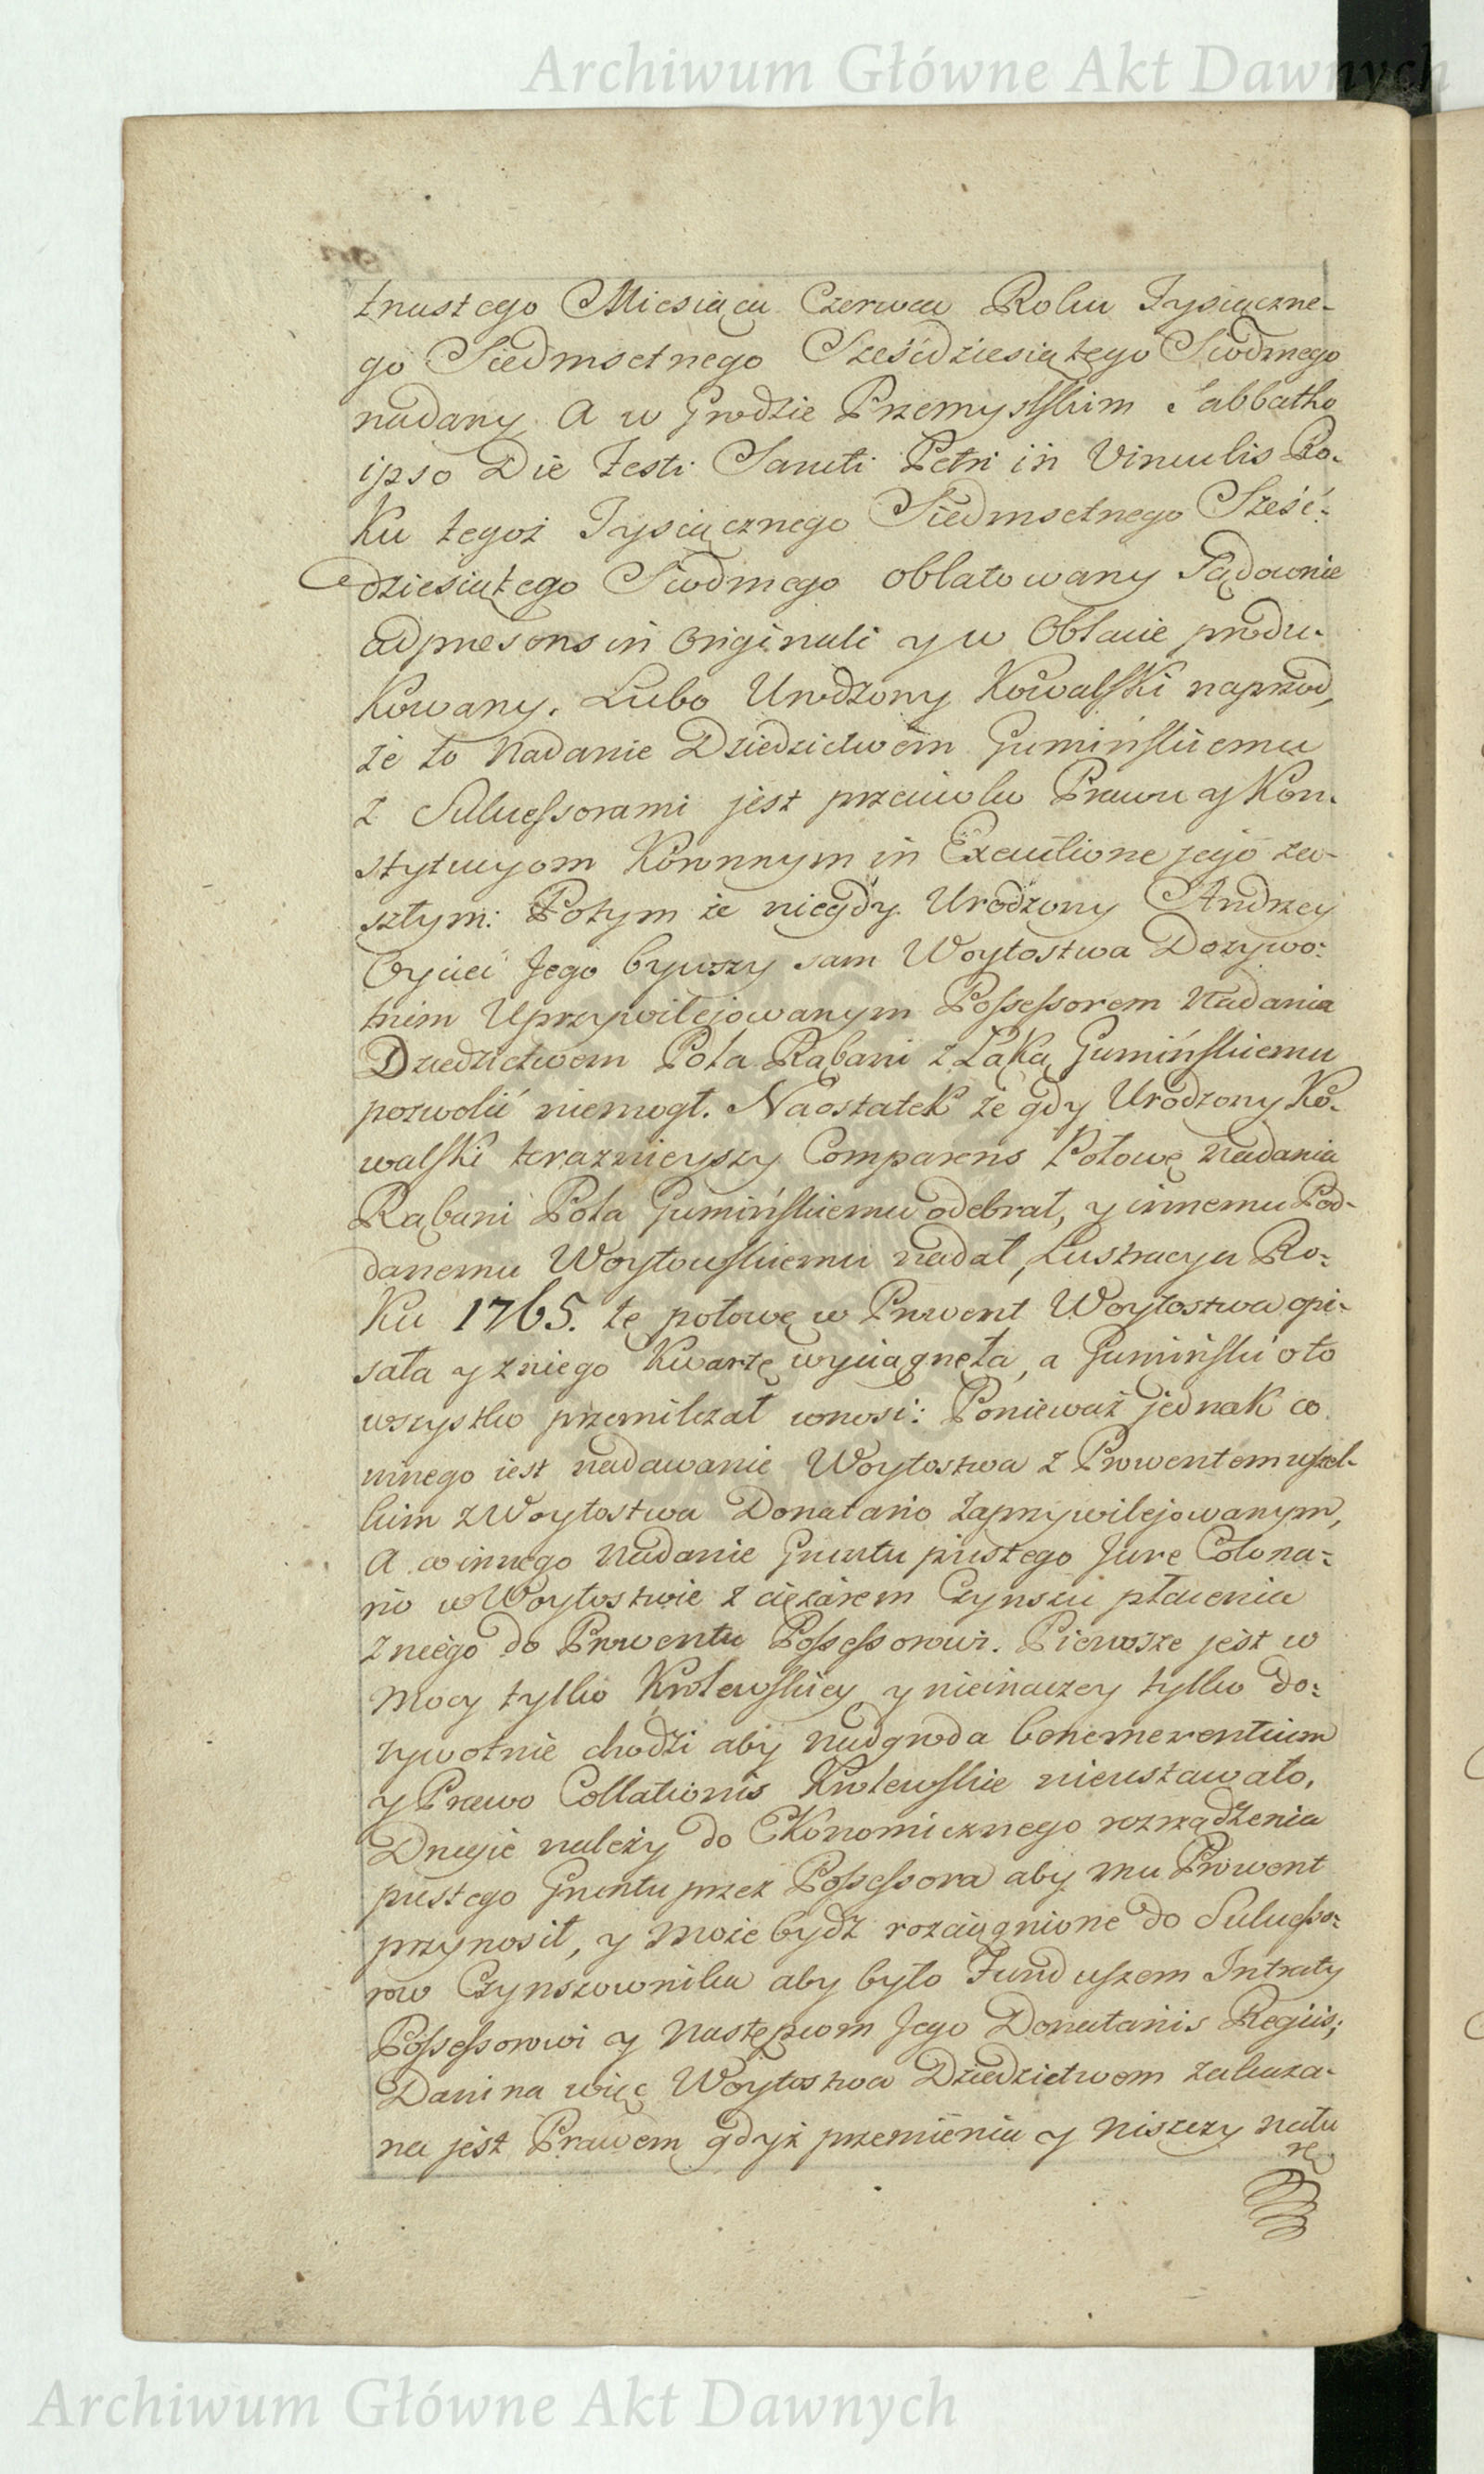 Archiwum Główne Akt Dawnych
tnastego Miesiąca Czerwca Roku Tysiączne-
go Siedmsetnego Sześćdziesiątego Siodmego
nadany. A w Grodzie Przemyslskim Sabbatho
ipso Die Festi Sancti Petri in Vinculis Ro-
ku tegoż Tysiącznego Siedmsetnego Sześć-
dziesiątego Siodmego oblatowany Sądownie
ad praesens in Originali y w Oblacie produ-
kowany. Lubo Urodzony Kowalski naprzod,
że to Nadanie Dziedzictwem Gumińskiemu
z Sukcessorami jest przeciwko Prawu y Kon-
stytucyom Koronnym in Executione jego za-
szłym: Potym że niegdy Urodzony Andrzey
Oyciec Jego bywszy sam Woytostwa Dożywo-
tnim Uprzywilejowanym Possessorem Nadania
Dziedzictwem Pola Rąbani z Łąką Gumińskiemu
pozwolić niemogł. Naostatek że gdy Urodzony Ko-
walski teraznieyszy Comparens Połowę Nadania
Rąbani Pola Gumińskiemu odebrał, y innemu Pod-
danemu Woytowskiemu nadał, Lustracya Ro-
ku 1765. tę połowę w Prowent Woytostwa opi-
sała y zniego Kwartę wyciągnęła, a Gumiński oto
wszystko przemilczał wnosi: Ponieważ jednak co
innego iest nadawanie Woytostwa z Prowentem wszel-
kim z Woytostwa Donatario Zaprzywilejowanym,
A co innego Nadanie Gruntu pustego Jure Colona-
rio w Woytostwie z ciężarem Czynszu płacenia
z niego do Prowentu Possessorowi. Pierwsze jest w
Mocy tylko Krolewskiey y nieinaczey tylko do-
żywotnie chodzi aby nadgroda benemerentium
y Prawo Collationis Krolewskie nieustawało.
Drugie należy do Ekonomicznego rozrządzenia
pustego Gruntu przez Possessora aby mu Prowent
przynosił, y może bydz rozciągnione do Sukcesso-
row Czynszownika aby było Funduszem Intraty
Possessorowi y Następcom Jego Donatariis Regiis;
Danina więc Woytostwa Dziedzictwem zakaza-
na jest Prawem gdyż przemienia y niszczy natu
rę
Archiwum Główne Akt Dawnych